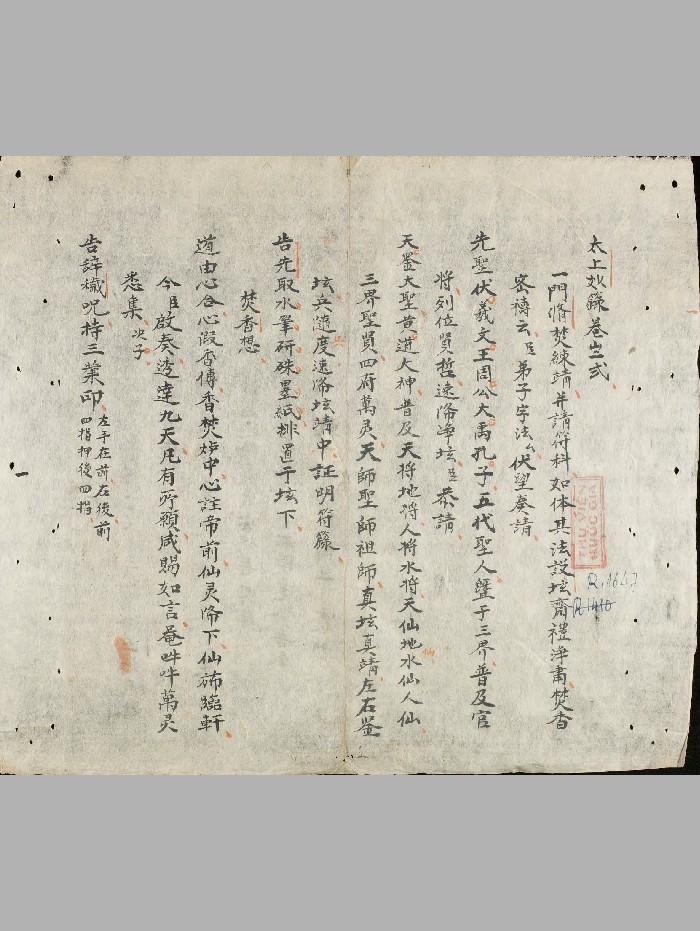 太上妙籙卷㞮弍
一門脩焚練靖并請符科如体其法設坛齋禮淨肅焚香
密禱云臣弟子字法厶伏望奏請
先聖伏羲文王周公大禹孔子五代聖人曁于三界普及官
將列位賢哲速降净坛臣恭請
天釜大聖黄道大神普及天将地将人将水将天仙地水仙人仙
仙
三界聖賢四府萬灵天師聖師祖師真坛真靖左右鉴
坛兵隨度速降坛靖中証明符籙
告先取水筆研硃墨紙排置于坛下
焚香想
道由心合心假香傳香焚炉中心註帝前仙灵降下仙斾臨軒
今臣啟奏迳達九天凡有所願咸賜如言菴吽吽萬灵
悉集 次子
告辞穢呪持三業印 左手在前右後前
四指押後四指
THƯ VIỆN
QUỐC GIA
R.1647
R.1410